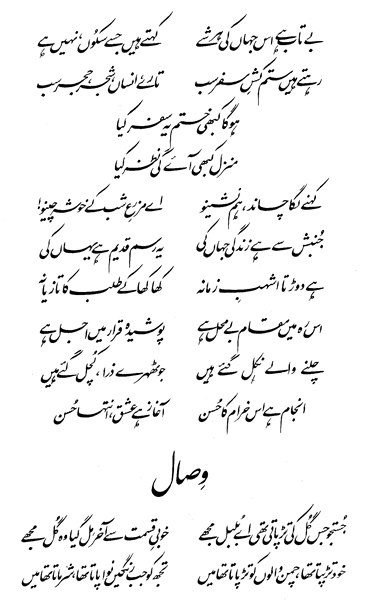 بے تاب ہے اس جہاں کی ہر شے    کہتے ہیں جسے سکوں، نہیں ہے
رہتے ہیں ستم کشِ سفر سب    تارے، انساں، شجر، حجر سب
ہوگا کبھی ختم یہ سفر کیا
منزل کبھی آئے گی نظر کیا
کہنے لگا چاند، ہم نشینو    اے مزرعِ شب کے خوشہ چینو!
جُنبش سے ہے زندگی جہاں کی    یہ رسم قدیم ہے یہاں کی
ہے دوڑتا اشہبِ زمانہ    کھا کھا کے طلب کا تازیانہ
اس رہ میں مقام بے محل ہے    پوشیدہ قرار میں اجل ہے
چلنے والے نکل گئے ہیں    جو ٹھہرے ذرا، کچل گئے ہیں
انجام ہے اس خرام کا حُسن    آغاز ہے عشق، انتہا حُسن
وِصال
جُستجو جس گُل کی تڑپاتی تھی اے بُلبل مجھے    خوبیِ قسمت سے آخر مِل گیا وہ گُل مجھے
خود تڑپتا تھا، چمن والوں کو تڑپاتا تھا میں    تجھ کو جب رنگیں نوا پاتا تھا، شرماتا تھا میں